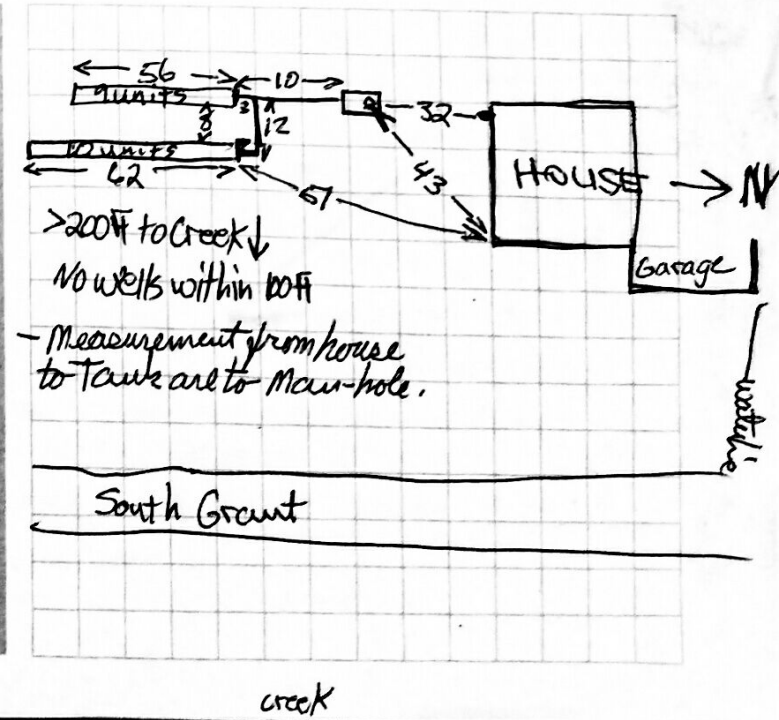 56
10
9 units
3
32
8
12
10 units
62
43
HOUSE
N
67
>200ft to Creek
No wells within 100ft
Garage
- Measurement from house
to Tank are to Man-hole.
waterline
South Grant
creek